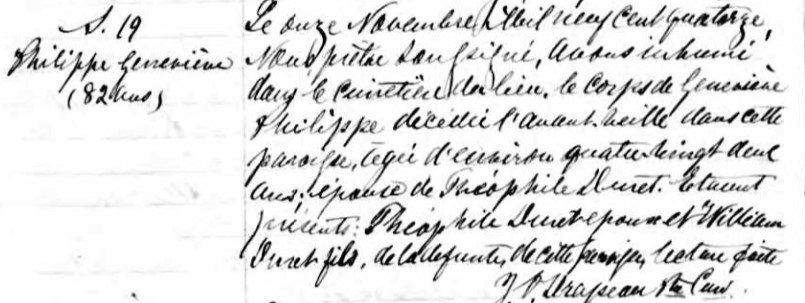 S. 19
Philippe Geneviève
(82 ans)
Le onze Novembre Mil neuf cent quatorze,
Nous prêtre soussigné, avons inhumé
dans le cimetière du lieu, le corps de Geneviève
Philippe décédée l'avant-veille dans cette
paroisse, agée d'environ quatre vingt deux
ans, épouse de Théophile Duret. Etaient
présents: Théophile Duret époux et William
Duret fils, de la défunte, de cette paroisse, lecture faite
J. Drapeau Ptre Curé.